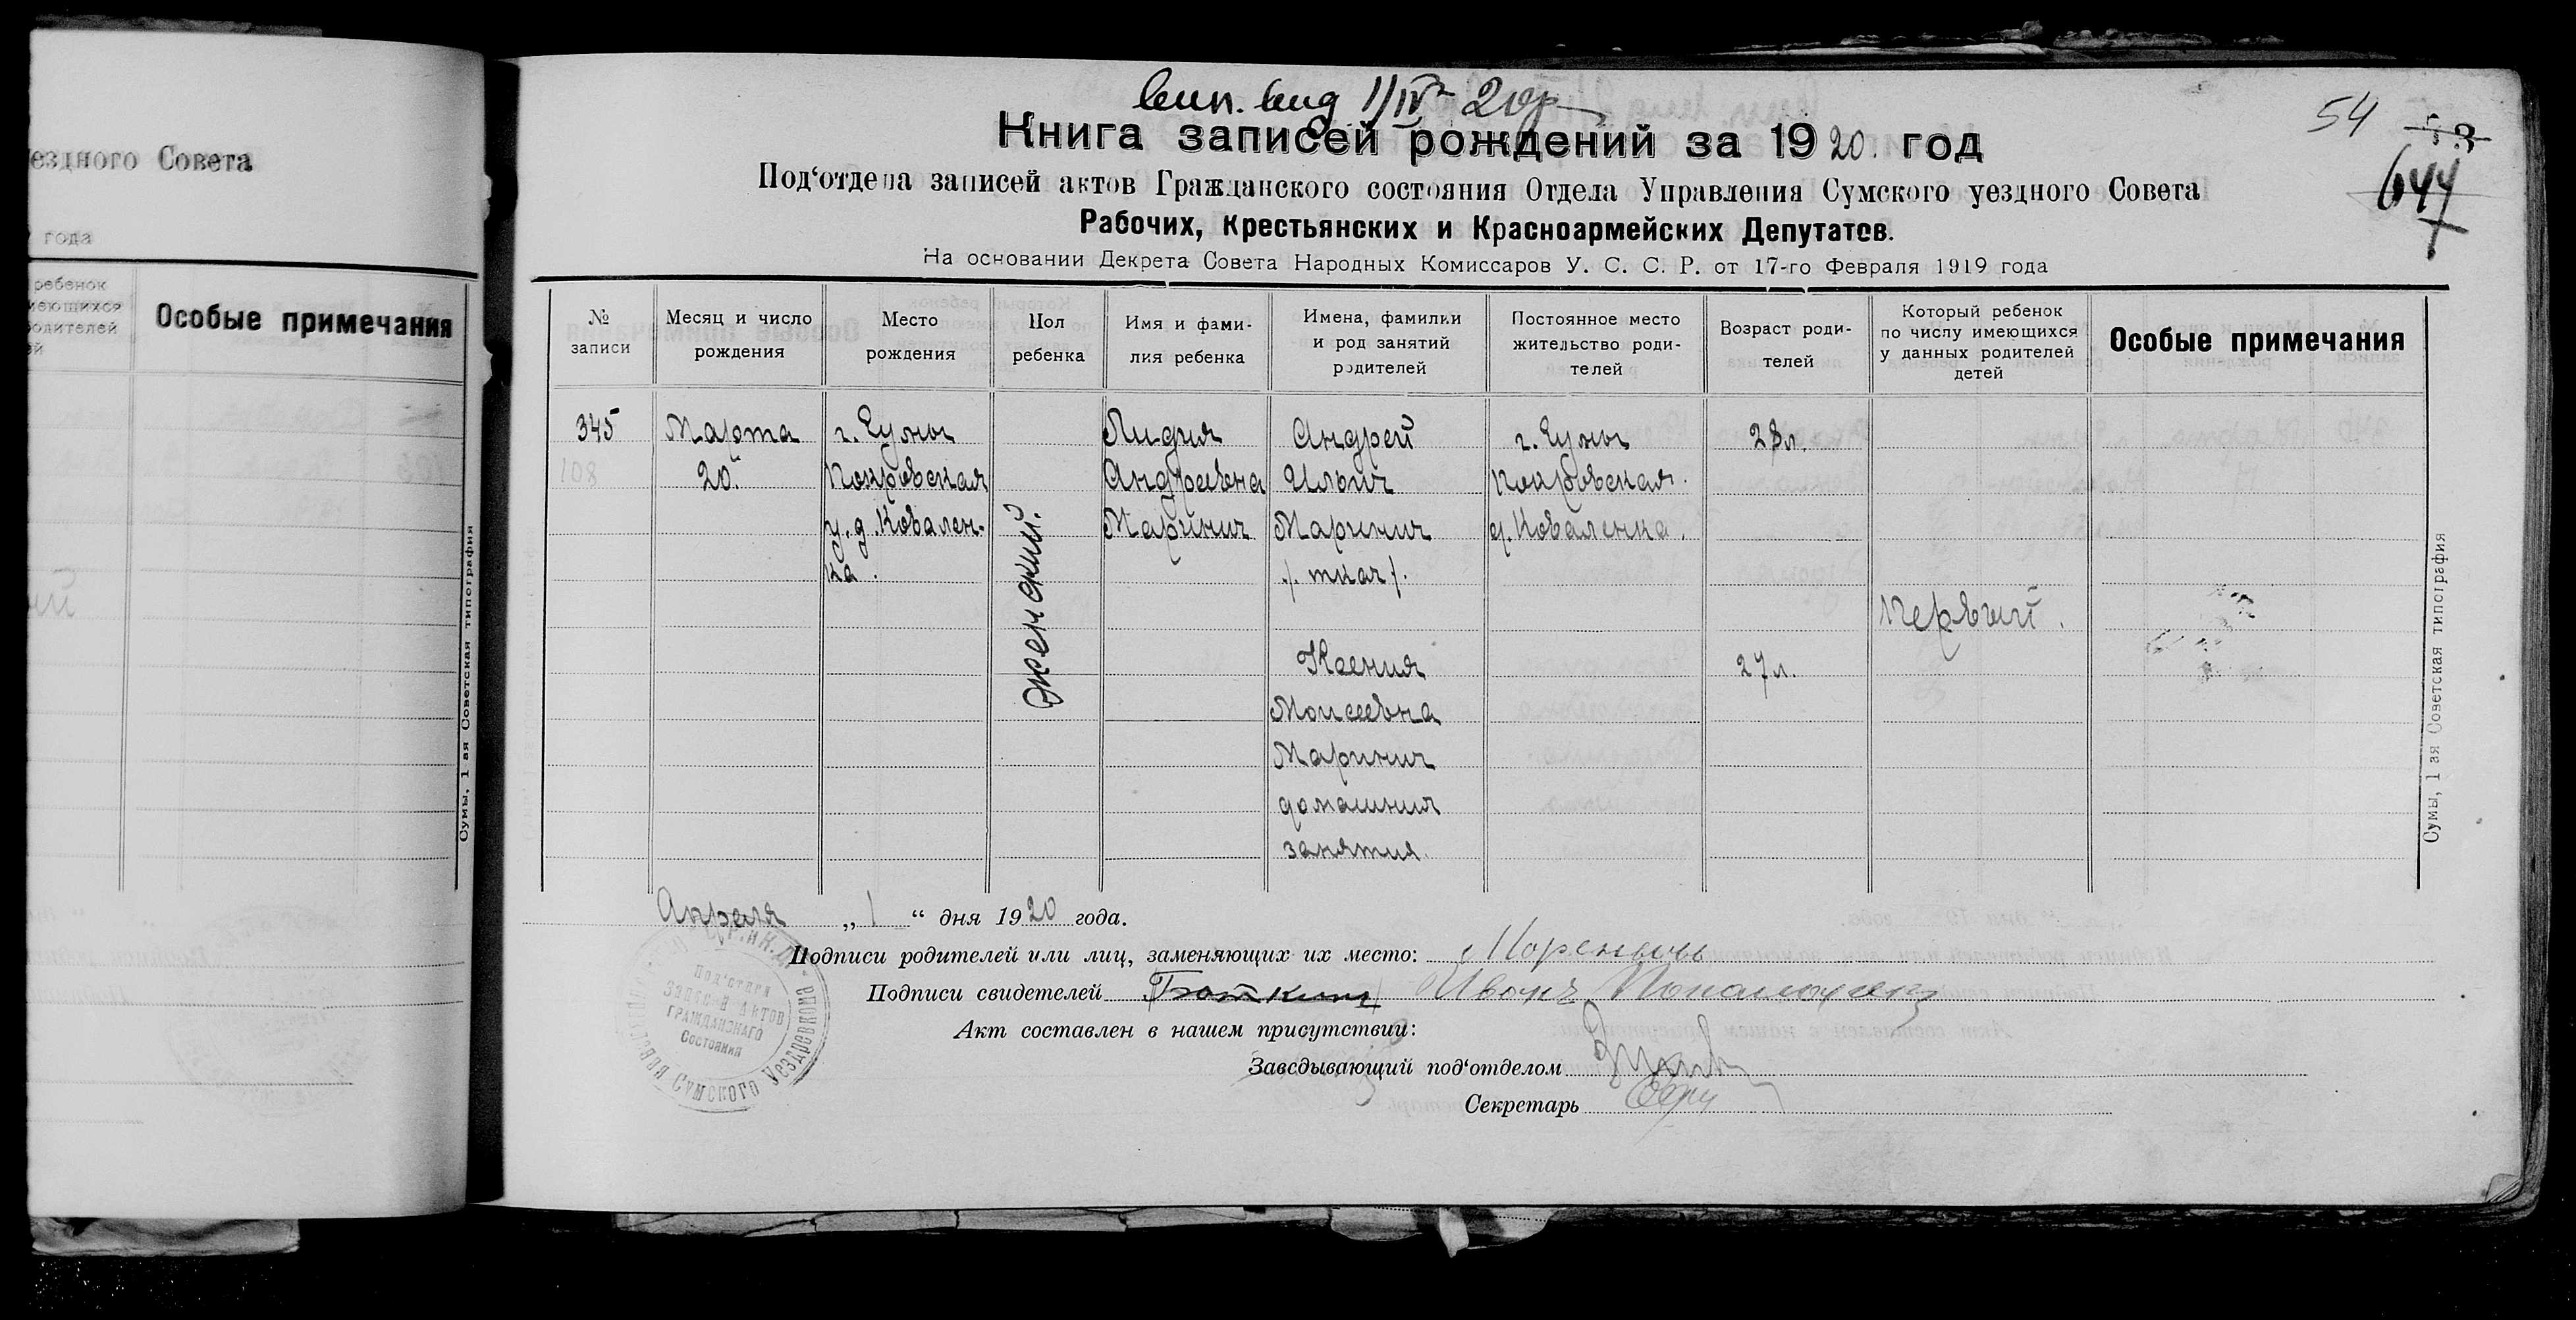 ездного Совета
года
ребенок
имеющихся
родителей
ей
Особые примечания
Сумы, 1 ая Советская типография
вид 1/IV 20г
54
53
644
Книга записей рождений за 1920. год
Под‘отдела записей актов Гражданского состояния Отдела Управления Сумского уездного Совета
Рабочих, Крестьянских и Красноармейских Депутатов.
На основании Декрета Совета Народных Комиссаров У. С. С. Р. от 17-го Февраля 1919 года
№ записи
Месяц и число рождения
Место рождения
Пол ребенка
Имя и фами-
лия ребенка
Имена, фамилии
и род занятий
родителей
Постоянное место
жительство роди-
телей
Возраст роди-
телей
Который ребенок
по числу имеющихся
у данных родителей
детей
Особые примечания
345
108
Марта
20.
г. Сумы
Покровская
у. д. Ковален-
ка.
женский.
Лидия
Андреевна
Маринич
Андрей
Ильич
Маринич
/. ткач /.
Ксения
Моисеевна
Маринич
домашния
занятия.
г. Сумы
Покровская.
д. Коваленка.
28л.
27л.
Первый.
Сумы, 1 ая Советская типография
Апреля „1“ дня 1920 года.
Подписи родителей или лиц, заменяющих их место:
Подписи свидетелей Иванъ
Акт составлен в нашем присутствии:
Заведывающий под‘отделом
Секретарь
Под‘отдел
Записей Актов
Гражданскаго
Состояния
Сумского Уездревкома